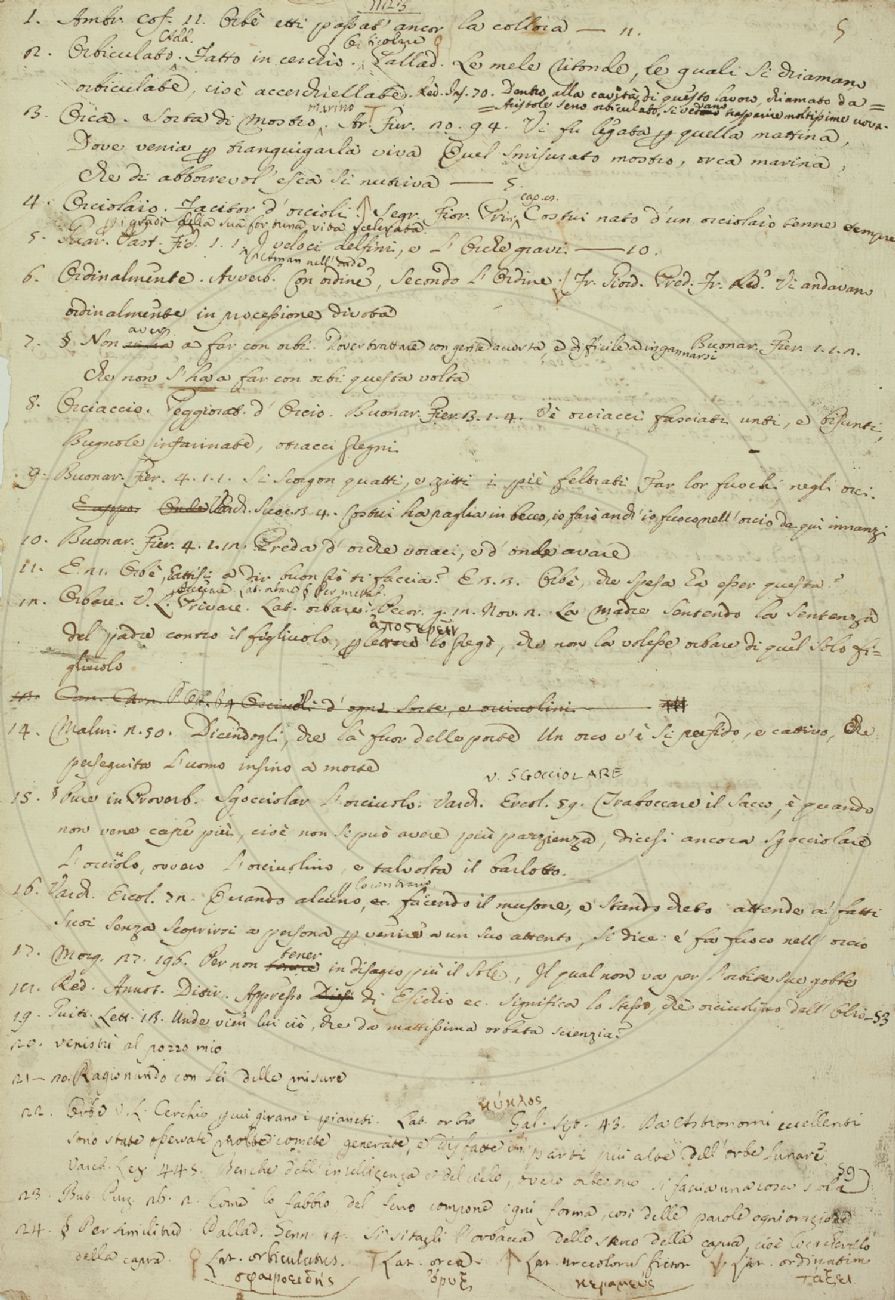 1123
5
1. Ambr. Cof. 11. Orbè etti passat' ancor la collora — 11.
2. Orbiculato. Add. Fatto in cerchio. Pallad. Le mele ritonde, le quali si chiamano
orbiculate, cioè accerchiellate. Red. Ins. 70. Dentro alla cavità di questo lavoro, chiamato da
Aristotele seno orbiculato, si vedevano trasparire moltissime uova.
3. Orca. Sorta di mostro marino. Ar. Fur. 10. 94. Vi fu legata quella mattina,
Dove venia tranguigarla viva Quel smisurato mostro, orca marina,
Che di abborrevol' esca si nutriva — 5.
4. Orciolaio. Facitor d'orcioli. Segr. Fior. Prin. cap. Costui nato d'un orciolaio tenne sempre
gradi della sua fortuna vita scelerata
5. Guar. Past. Fid. 1. 1. I veloci delfini, e l'Orche gravi. — 10.
Aman nell'onde
6. Ordinalmente. Avverb. Con ordine, secondo l'ordine. Fr. Giord. Pred. Vi andavano
ordinalmente in processione divota
7. §. Non aver a far con orbi. Dover trattare con gente accorta, e difficile a ingannarsi Buonar. Fier. 1. 1. 11.
Che non s'ha a far con orbi questa volta
8. Orciaccio. Peggiorat. d'Orcio. Buonar. Fier. 3. 1. 4. Ve' orciacci fasciati unti, e bisunti,
Bugnole infarinate, otracci pregni
9. Buonar. Fier. 4. 1. 1. Si scorgon quatti, e zitti i piè feltrati Far lor fuochi negli orci.
Varch. Suoc. 3. 4. Costui ha paglia in becco, io farò anch'io fuoco nell'orcio da qui innanzi
10. Buonar. Fier. 4. 1. 11. Preda d'orche voraci, e d'onde avare
11. E 11. 1. Orbè, a dir buon prò ti faccia? E 3. 3. Orbè, che spesa ha esser questa?
12. Orbare. V. L. Privare. Lat. orbare. ἀποστερεῖν Decor. g. 2. Nov. 2. La madre sentendo la sentenza
del padre contro il figliuolo, lo pregò, che non la volesse orbare di quel solo fi-
gliuolo
14. Malm. 2. 50. Dicendogli, che là fuor delle porte Un orco v'è sì perfido, e cattivo, Che
perseguita l'uomo insino a morte
v. SGOCCIOLARE
15. § Pure in Proverb. Sgocciolar l'orciuolo. Varch. Ercol. 59. Traboccare il sacco, è quando
non vene cape più, cioè non si può avere più pazzienza, dicesi ancora sgocciolare
l'orciolo, ovvero l'orciuolino, e talvolta il barlotto.
16. Varch. Ercol. 72. Quando alcuno, ec. facendo il musone, e stando cheto attende a' fatti
suoi senza scoprirsi a persona venire a un suo attento, si dice: e' fa fuoco nell'orcio
17. Morg. 27. 196. Per non tener in disagio più il sole, Il qual non va per l'orbite sue gobbe
18. Red. Annot. Ditir. Appresso di Esichio ec. significa lo stesso, che orciuolino dall'Olio 53
19. Guitt. Lett. 13. Unde vien lui ciò, che da mattissima orbata scienzia?
20. venistu al pozzo mio
21 — Ragionando con lei delle misure
22. Orbe V. L. Cerchio, gira i pianeti. Lat. orbis κύκλος Gal. Sist. 43. Da Astronomi eccellenti
sono state osservate molte comete generate, e disfatte in parti più alte dell'orbe lunare
Varch. Lez. 445. Benche dell'intelligenza e del cielo, overo orbe suo si faccia una cosa sola 59)
23. But. Purg. 26. 2. Come lo fabbro del ferro compone ogni forma, così delle parole ogni orazione
24. § Per similitud. Pallad. Genn. 14. Si vi tagli l'orbacca dello sterco della capra, cioè lo
della capra. Lat. orbiculatus. σφαιροειδής Lat. orca ὄρυξ Lat. urceolorus fictor κεραμεύς Lat. ordinatim τάξει